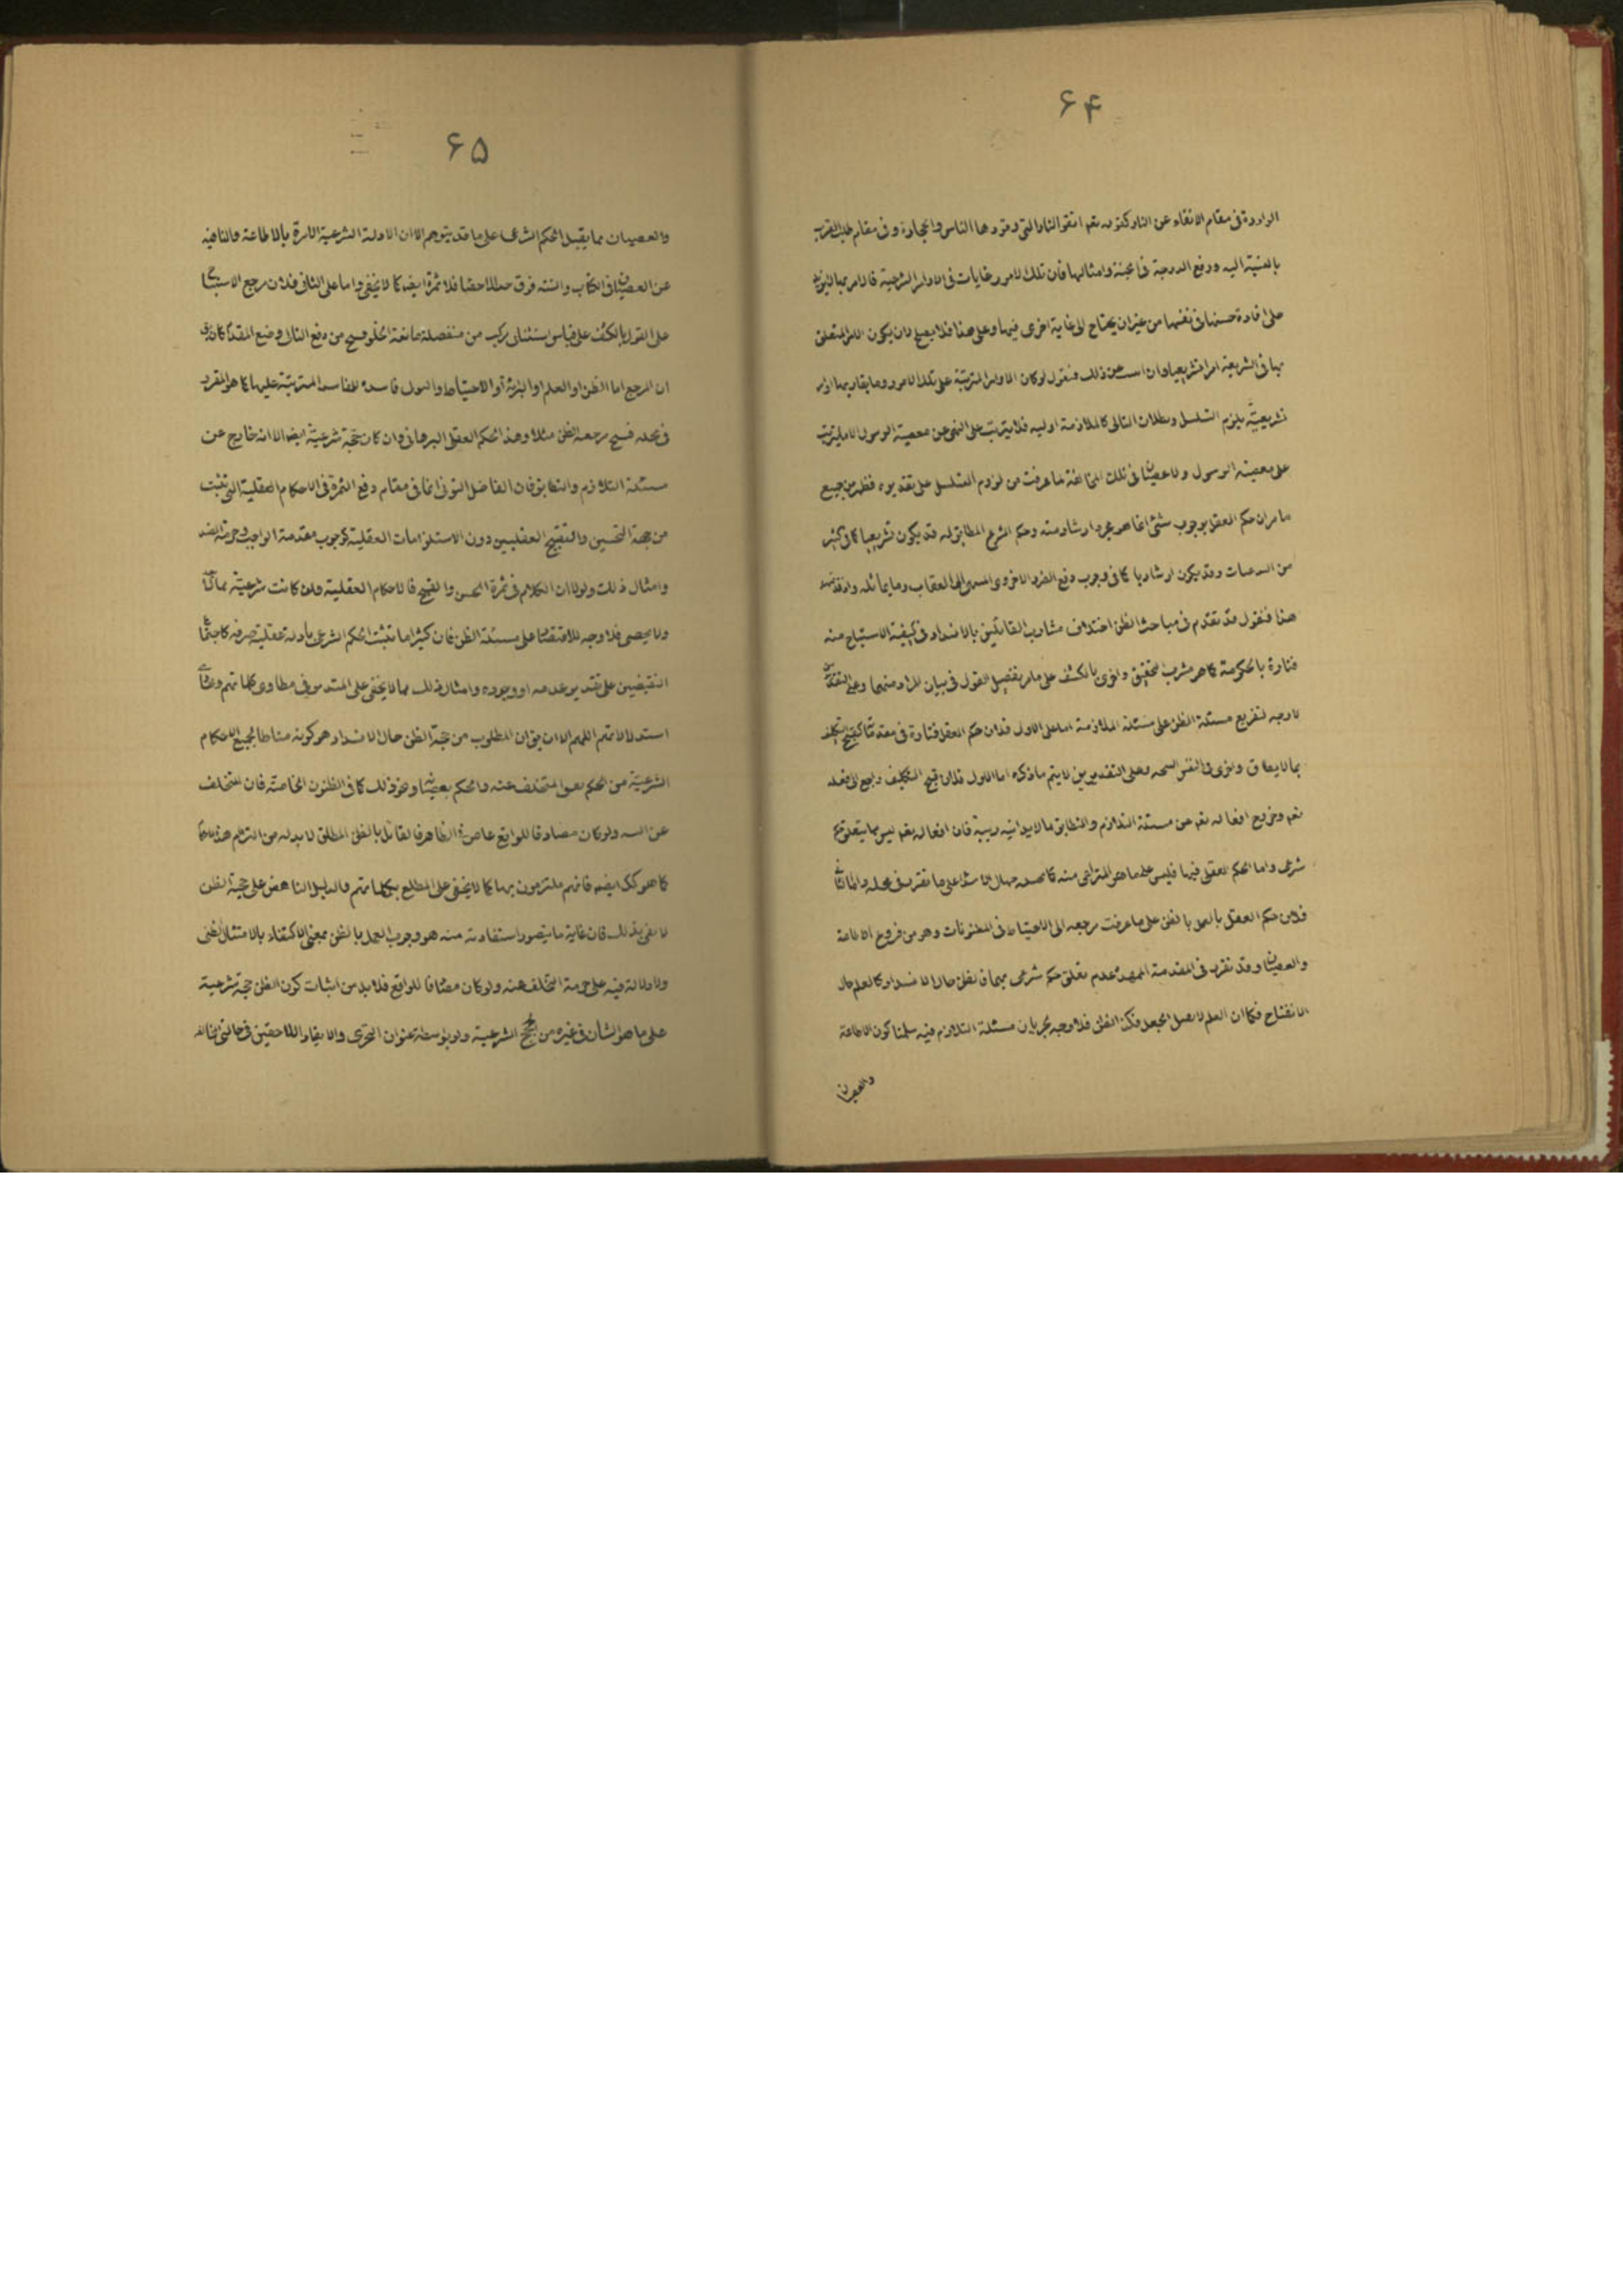 ۶۴
الواردة فى مقام الاتقاء عن النار كقوله تعم اتقوا النار التى وقودها الناس والحجارة وفى مقام طلب القرب
بالنسبة اليه ورفع الدرجة فى الجنة وامثالها فان تلك الامور غايات فى الاوامر الشرعية فالامر بها
على افادة حسنها فى نفسها من غير ان يحتاج الى غاية اخرى فيها وعلى هذا فلا يصلح لان يكون الامر المتعلق
بها فى الشريعة امرا تشريعيا وان ذلك فنقول لو كان الاوامر المترتبة على تلك الامور وما يقاربها اوامر
تشريعية يلزم التسلسل وبطلان التالى كالملازمة اوليه فلا يترتب على النهى عن معصية الرسول الا ما يترتب
على معصية الرسول ولا عصيان فى تلك المخالفة لما عرفت من لزوم التسلسل على تقديره فظهر من جميع
ما مر ان حكم العقل بوجوب شئ انما هو مجرد ارشاد منه وحكم الشرع المطابق له قد يكون تشريعيا كما فى كثير
من وقد يكون ارشاديا كما فى وجوب دفع الضرر الاخروى المسمى بالعقاب وما يماثله واذ قد تمهد
هذا فنقول قد تقدم فى مباحث الظن اختلاف مشارب القائلين بالانسداد فى كيفية الاستنتاج منه
فتارة بالحكومة كما هو مشرب التحقيق واخرى بالكشف على ما مر تفصيل القول فى بيان المراد منهما وعلى التقديرين
لا وجه لتفريع مسئلة الظن على مسئلة الملازمة اما على الاول فلان حكم العقل فتارة فى مقدماتها كقبح التكليف
بما لا يطاق واخرى فى النفس وعلى التقديرين لا يتم ما ذكره اما الاول فلان قبح التكليف راجع الى فعله
تعم وخروج افعاله تعم عن مسئلة التلازم والتطابق مما لا يدانيه ريبة فان افعاله تعم ليس مما يتعلق بها حكم
شرعى واما الحكم العقلى فيها فليس على ما هو المترائى منه كما على ما تقرر فى محله واما الثانى
فلان حكم العقل بالعمل بالظن على ما عرفت مرجعه الى الاحتياط فى المظنونات وهو من فروع الاطاعة
والعصيان وقد تقرر فى المقدمة الممهدة عدم تعلق حكم شرعى بهما فالظن حال الانسداد كالعلم حال
الانفتاح فكما ان العلم لا يقبل الجعل فكذا الظن فلا وجه لجريان مسئلة التلازم فيه سلمنا كون الاطاعة
والعصيان
۶۵
والعصيان مما يقبل الحكم الشرعى على ما قد يتوهم الا ان الادلة الشرعية الامرة بالاطاعة والناهية
عن العصيان فى الكتاب والسنة فوق حد الاحصاء فلا ثمرة ايضه كما لا يخفى واما على الثانى فلان مرجع الاستنتاج
على القول بالكشف على قياس استثنائى مركب من منفصلة مانعة الخلو فينتج من رفع التالى وضع المقدم كان يق
ان المرجع اما الظن او العلم او البرائة أو الاحتياط والتوالى فاسدة للمفاسد المترتبة عليها كما هو المقرر
فى محله فينتج مرجعية الظن مثلا وهذا الحكم العقلى البرهانى وان كان حجة شرعية ايضا الا انه خارج عن
مسئلة التلازم والتطابق فان الفاضل التونى انما فى مقام رفع الثمرة فى الاحكام العقلية التى تثبت
من جهة التحسين والتقبيح العقليين دون الاستلزامات العقلية كوجوب مقدمة الواجب وحرمة الضد
وامثال ذلك ولولا ان الكلام فى ثمرة الحسن والقبح فالاحكام العقلية ولو كانت شرعية
ولا يحصى فلا وجه للاقتصار على مسئلة الظن فان كثيرا ما تثبت الحكم الشرعى بأدلة عقلية صرفة كاجتماع
النقيضين على تقدير عدمه او وجوده وامثال ذلك مما لا يخفى على المتدبر فى مطاوى كلماتهم
استدلالاتهم اللهم الا ان يق ان المطلوب من حجية الظن حال الانسداد هو كونه مناطا لجميع الاحكام
الشرعية من الحكم المتخلف عنه والحكم بعصيانه ونحو ذلك كما فى الظنون الخاصة فان المتخلف
عن ولو كان مصادفا للواقع عاص فى الظاهر فالقائل بالظن المطلق لا بد له من التزام هذه الاحكام
كما هو كك ايضه فانهم ملتزمون بها كما لا يخفى على المطلع بكلماتهم والدليل الناهض على حجية الظن
لا يفى بذلك فان غاية ما يتصور استفادته منه هو وجوب العمل بالظن بمعنى الاكتفاء بالامتثال الظنى
ولا دلالة فيه على حرمة التخلف عنه ولو كان مصادفا للواقع فلا بد من اثبات كون الظن حجة شرعية
على ما هو الشأن فى غيره من الحجج الشرعية ولو بواسطة عنوان التجرى والانقياد اللاحقين فى حالتى المخالفة